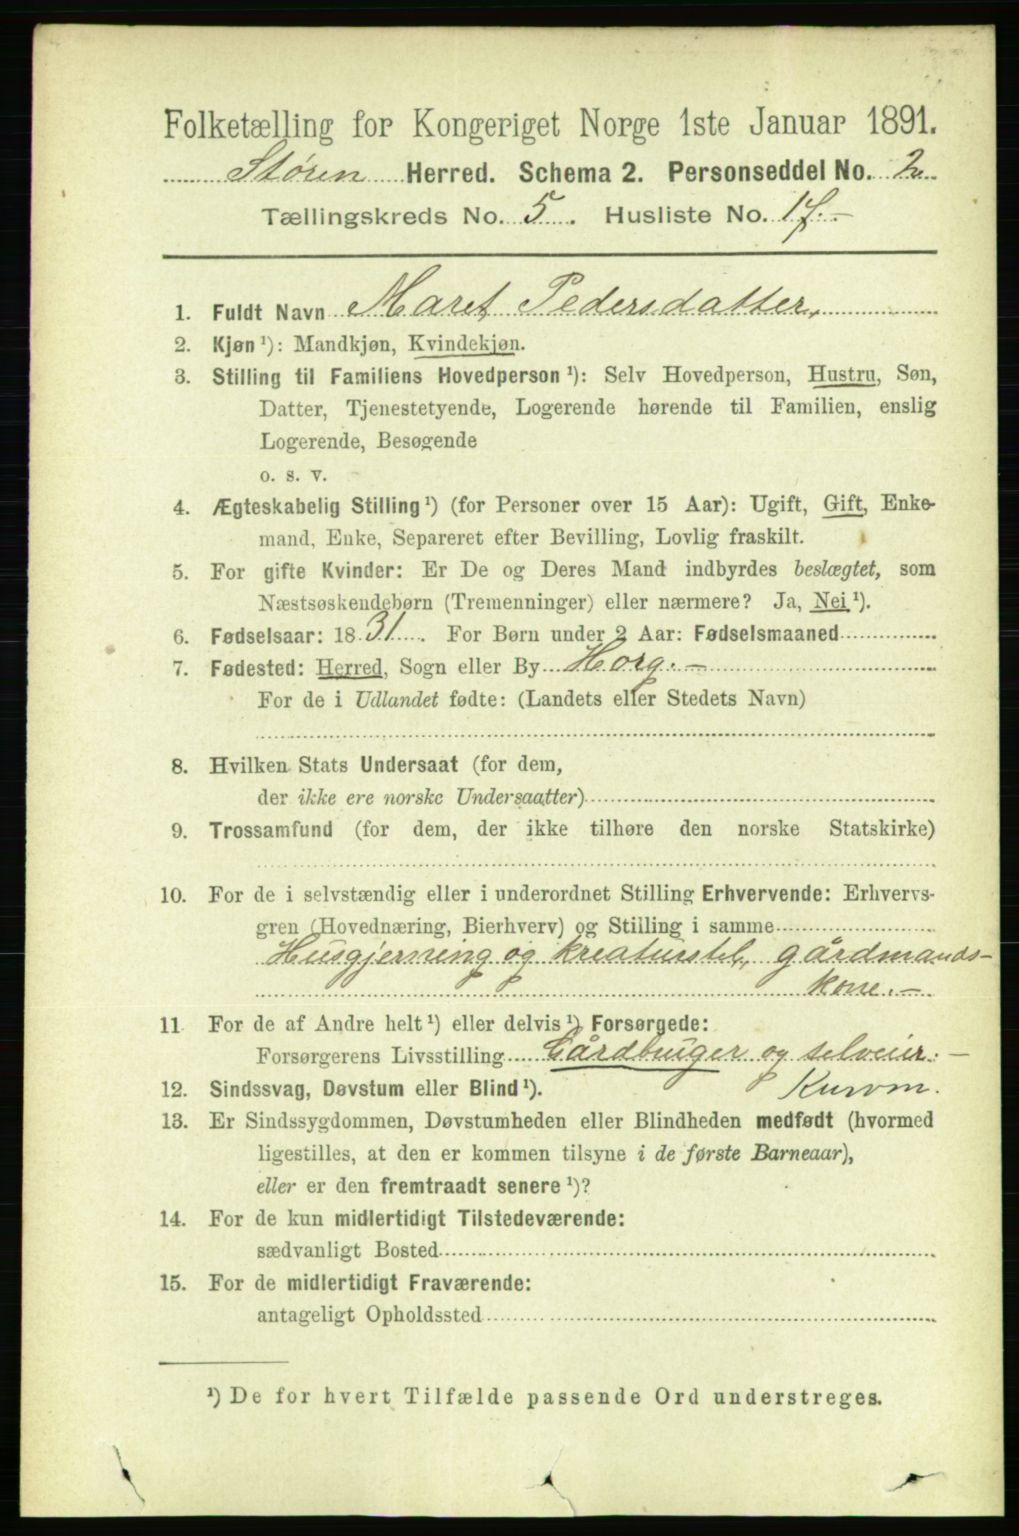 Folketælling for Kongeriget Norge 1ste Januar 1891.
Støren Herred. Schema 2. Personseddel No. 2
Tællingskreds No. 5. Husliste No. 17.-
1. Fuldt Navn Maret Pedersdatter,
2. Kjøn ¹): Mandkjøn, Kvindekjøn.
3. Stilling til Familiens Hovedperson ¹): Selv Hovedperson, Hustru, Søn,
Datter, Tjenestetyende, Logerende hørende til Familien, enslig
Logerende, Besøgende
o. s. v.
4. Ægteskabelig Stilling ¹) (for Personer over 15 Aar): Ugift, Gift, Enke-
mand, Enke, Separeret efter Bevilling, Lovlig fraskilt.
5. For gifte Kvinder: Er De og Deres Mand indbyrdes beslægtet, som
Næstsøskendebørn (Tremenninger) eller nærmere? Ja, Nei ¹).
6. Fødselsaar: 1831. For Børn under 2 Aar: Fødselsmaaned
7. Fødested: Herred, Sogn eller By Horg.-
For de i Udlandet fødte: (Landets eller Stedets Navn)
8. Hvilken Stats Undersaat (for dem,
der ikke ere norske Undersaatter)
9. Trossamfund (for dem, der ikke tilhøre den norske Statskirke)
10. For de i selvstændig eller i underordnet Stilling Erhvervende: Erhvervs-
gren (Hovednæring, Bierhverv) og Stilling i samme
Husgjerning og kreaturstel, gårdmands-
kone.-
11 For de af Andre helt ¹) eller delvis ¹) Forsørgede:
Forsørgerens Livsstilling Gårdbruger og selveier.-
12. Sindssvag, Døvstum eller Blind ¹).
13. Er Sindssygdommen, Døvstumheden eller Blindheden medfødt (hvormed
ligestilles, at den er kommen tilsyne i de første Barneaar),
eller er den fremtraadt senere ¹)?
14. For de kun midlertidigt Tilstedeværende:
sædvanligt Bosted
15. For de midlertidigt Fraværende:
antageligt Opholdssted
¹) De for hvert Tilfælde passende Ord understreges.